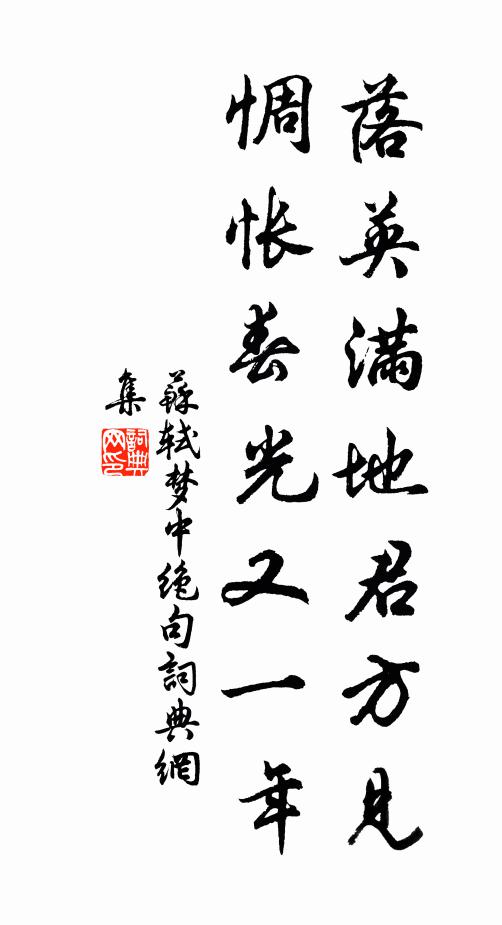 落英满地君方见
惆怅春光又一年
蘇轼梦中绝句詞典網
集
詞典
网印